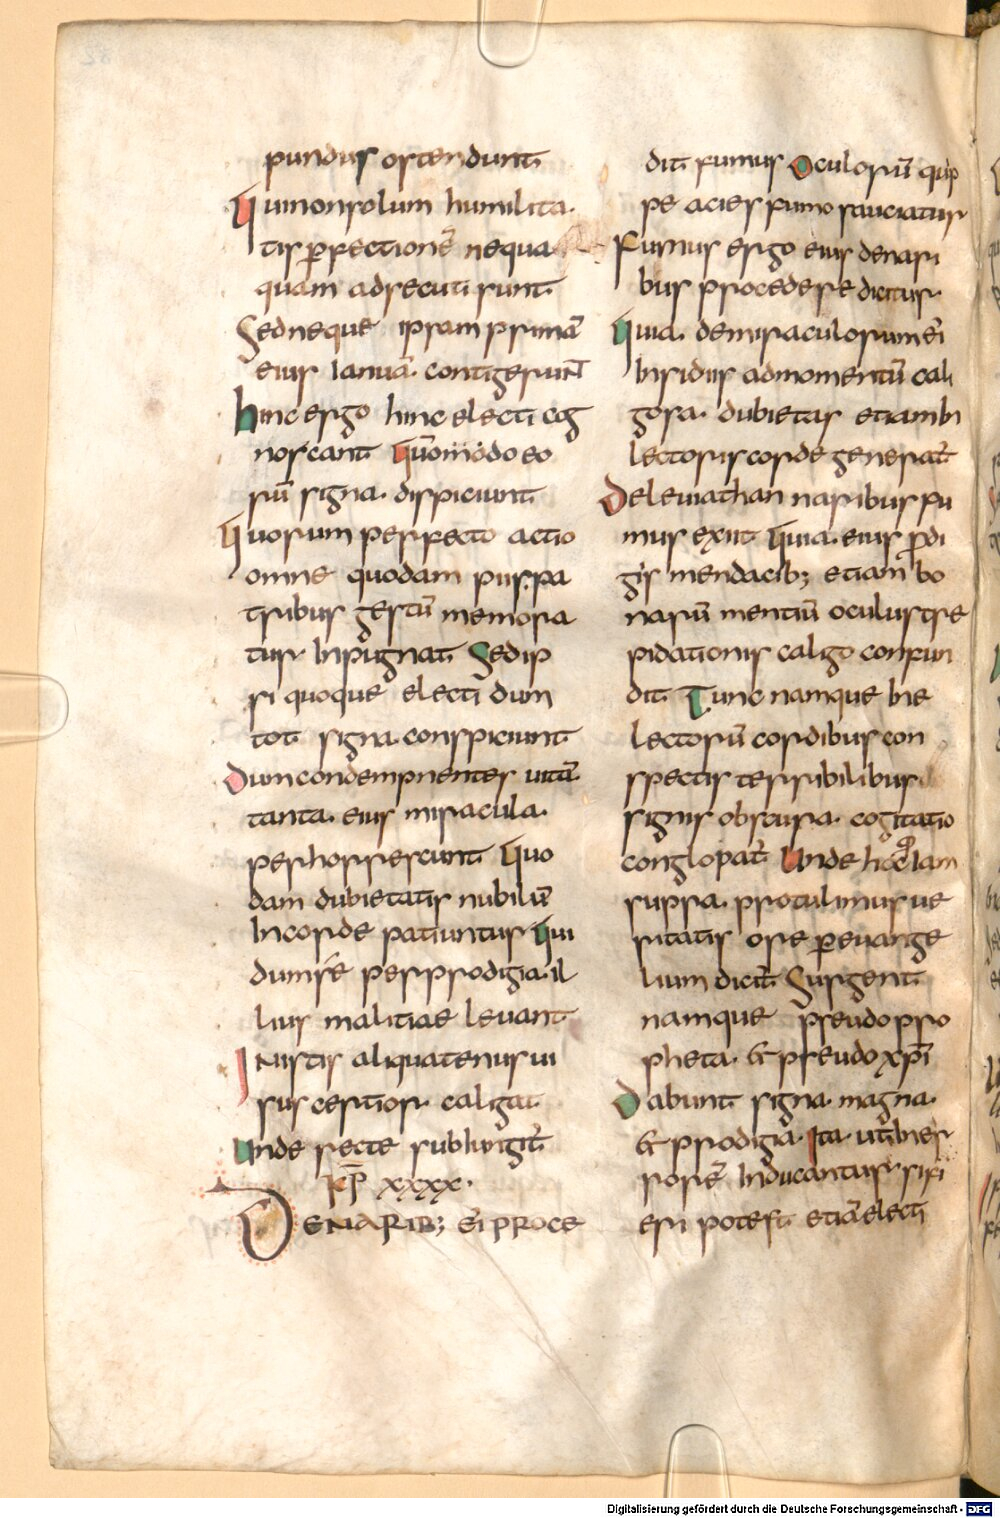 pundus ostendunt
Qui non solum humilita
tis ꝑfectionē nequa
quam adsecuti sunt
Sed neque ipsam primā
eius ianuā contigerunt
hinc ergo hinc electi cog
noscant quōmodo eo
rū signa dispiciunt
Quorum perfecto actio
omne quodam pus pa
tribus gestū memora
tur Inpugnat Sed ip
si quoque electi dum
tot signa conspiciunt
Dum condempnentes uitā
tanta eius miracula
perhorrescunt Quo
dam dubietatis nubilū
In corde patiuntur Qui
dum se per prodigia il
lius malitiae leuant
Iustis aliquatenus ui
sus certior caligat
Unde recte subiungit̄
Kp̄ xxxx
DE NARIB; EĪ PROCE
dit fumus Oculorū quip
pe acies fumo sauciatur
Fumus ergo eius de nari
bus procedere dicitur
Quia de miraculorum eī
Insidiis ad momentū cali
gosa dubietas etiam In
lectorus corde generat̄
De leuiathan naribus fu
mus exiit Quia eius ꝓdi
giis mendacib; etiam bo
narū mentiū oculus tre
pidationis caligo confun
dit Tunc namque In e
lectorū cordibus con
spectis terribilibus
signis obscura cogitatio
conglopat̄ Unde hoc iam
supra protulimus ue
ritatis ore ꝑ euange
lium dicit̄ Surgent
namque pseudo pro
pheta & pseudo xp̄i
Dabunt signa magna
& prodigia Ita ut In er
rorē Inducantur si fi
eri potest etiā electi
Digitalisierung gefördert durch die Deutsche Forschungsgemeinschaft - DFG